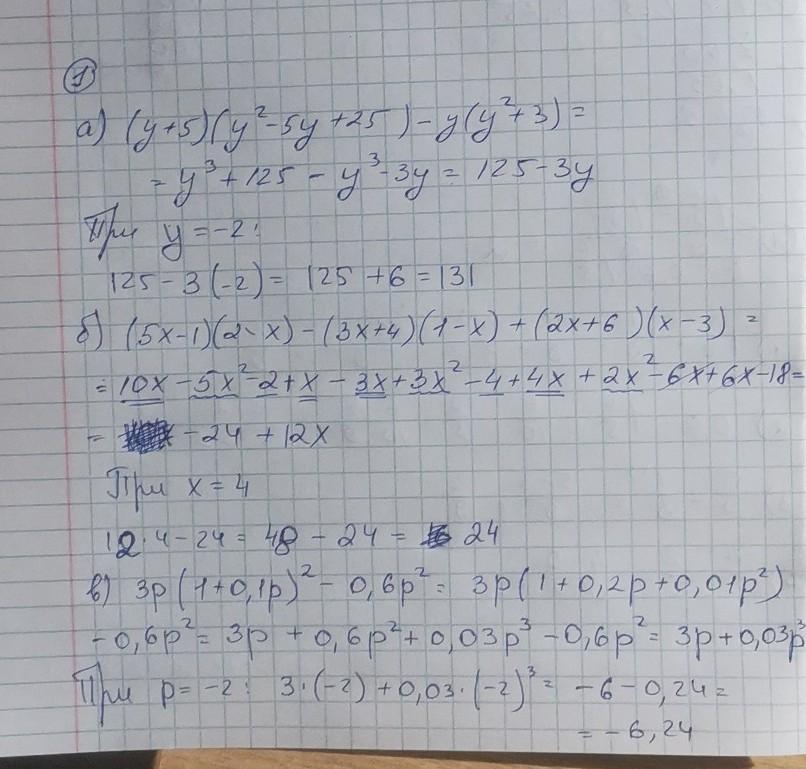 1
а) (y+5)(y²-5y+25)-y(y²+3)=
= y³+125-y³-3y= 125-3y
При y=-2:
125-3(-2)= 125+6=131
б) (5x-1)(2-x)-(3x+4)(1-x)+(2x+6)(x-3) =
= 10x-5x²-2+x-3x+3x²-4+4x+2x²-6x+6x-18=
= -24+12x
При x=4
12·4-24=48-24= 24
в) 3p(1+0,1p)²-0,6p²= 3p(1+0,2p+0,01p²)
-0,6p²=3p+0,6p²+0,03p³-0,6p²=3p+0,03p³
При p=-2: 3·(-2)+0,03·(-2)³= -6-0,24=
=-6,24